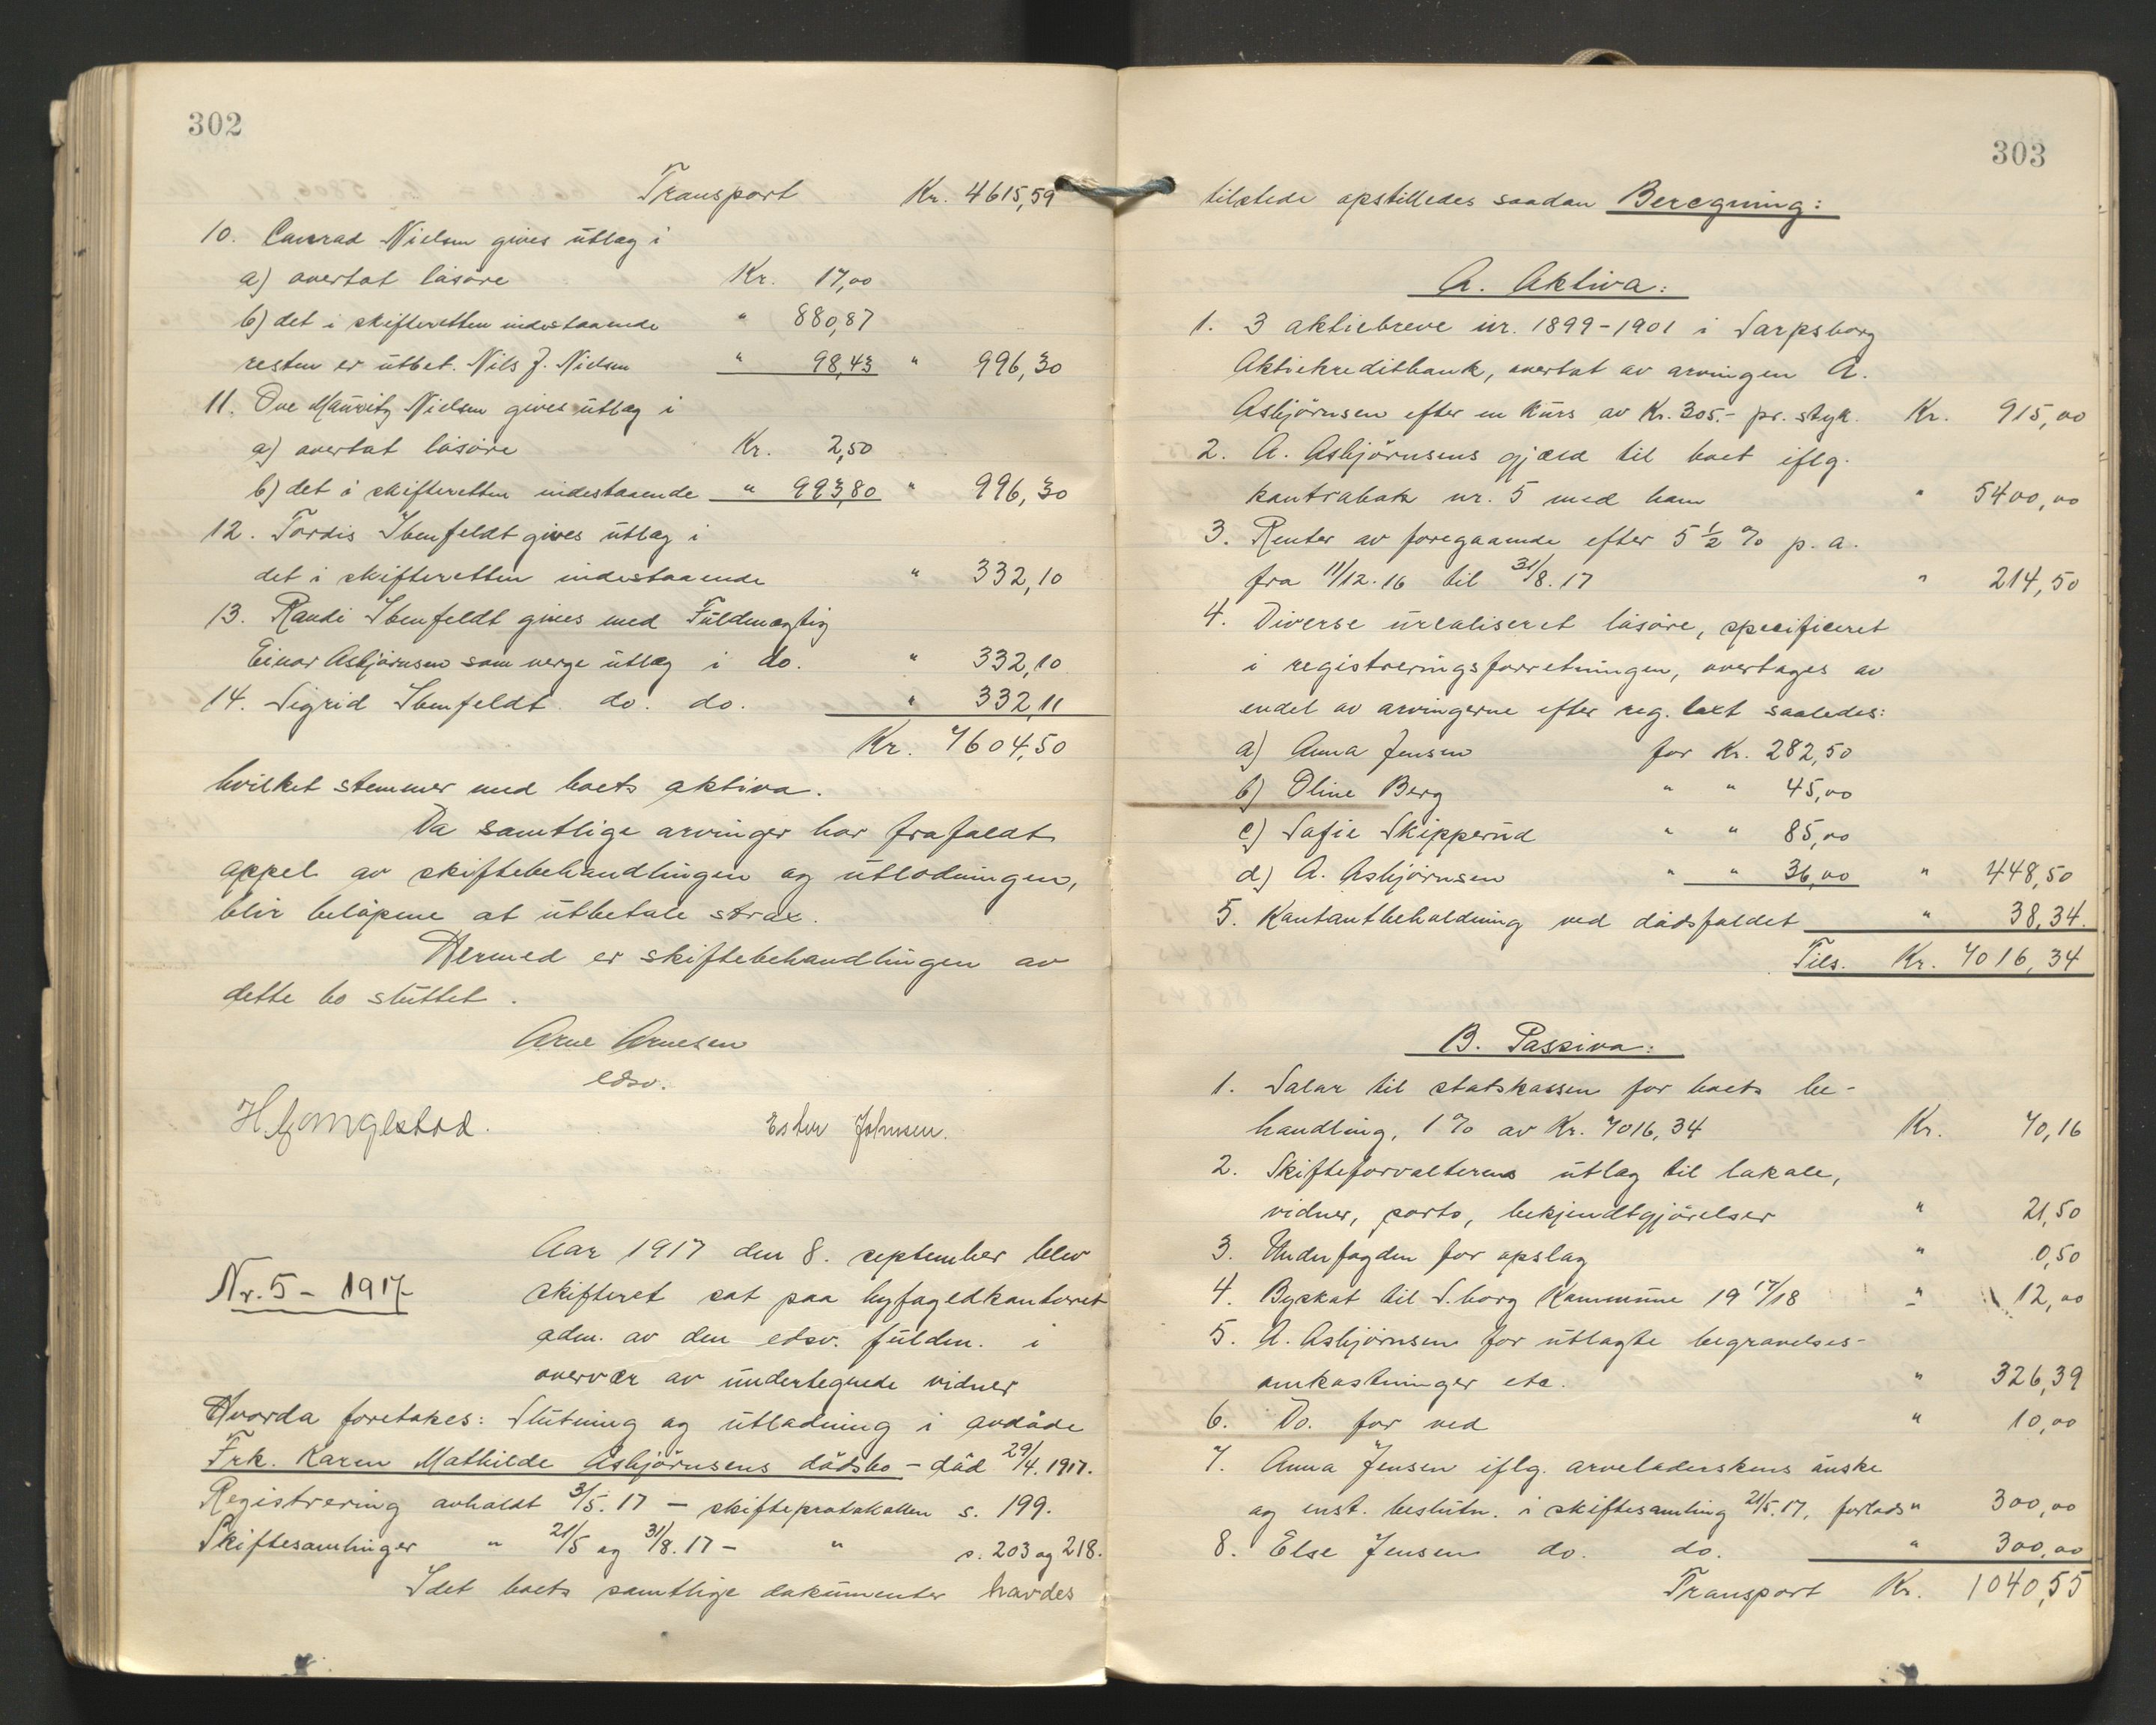 302
Transport Kr. 4615,59
10. Conrad Nielsen gives utlæg i
a) overtat løsøre Kr. 17,00
b) det i skifteretten indestaaende " 880,87
resten er utbet. Nils J. Nielsen " 98,43 " 996,30
11. Ove Mauritz Nielsen gives utlæg i
a) overtat løsøre Kr. 2,50
b) det i skifteretten indestaaende " 993,80 " 996,30
12. Tordis Ibenfeldt gives utlæg i
det i skifteretten indestaaende " 332,10
13. Randi Ibenfeldt gives med Fuldmægtig
Einar Asbjørnsen som verge utlæg i do. " 332,10
14. Sigrid Ibenfeldt do. do. " 332,11
Kr. 7604,50
hvilket stemmer med boets aktiva.
Da samtlige arvinger har frafaldt
appel av skiftebehandlingen og utlodningen,
blir beløpene at utbetale strax.
Hermed er skiftebehandlingen av
dette bo sluttet.
Arne Arnesen
edsv.
Ester Johnsen.
Nr. 5 - 1917
Aar 1917 den 8. september blev
skifteret sat paa byfogedkontoret
adm. av den edsv. fuldm. i
overvær av undertegnede vidner
Hvorda foretokes: Slutning og utlodning i avdøde
Frk. Karen Mathilde Asbjörnsens dødsbo - död 29/4. 1917.
Registrering avholdt 3/5. 17 - skifteprotokollen s. 199.
Skiftesamlinger " 21/5 og 31/8. 17 - " s. 203 og 218.
Idet boets samtlige dokumenter havdes
303
tilstede opstilledes saadan Beregning:
A. Aktiva:
1. 3 aktiebreve nr. 1899-1901 i Sarpsborg
Aktiekreditbank, overtat av arvingen A.
Asbjörnsen efter en kurs av Kr. 305.- pr. styk. Kr. 915,00
2. A. Asbjörnsens gjæld til boet iflg.
kontrabok nr. 5 med ham " 5400,00
3. Renter av foregaaende efter 5 1/2 % p. a.
fra 11/12. 16 til 31/8. 17 " 214,50
4. Diverse urealiseret løsøre, specificeret
i registreringsforretningen, overtages av
endel av arvingerne efter reg. taxt saaledes:
a) Anna Jensen for Kr. 282,50
b) Oline Berg " " 45,00
c) Sofie Skipperud " " 85,00
d) A. Asbjørnsen " " 36,00 " 448,50
5. Kontantbeholdning ved dødsfaldet " 38,34.
Tils. Kr. 7016,34
B. Passiva:
1. Salar til statskassen for boets be-
handling, 1 % av Kr. 7016,34 Kr. 70,16
2. Skifteforvalterens utlæg til lokale,
vidner, porto, bekjendtgjörelser " 21,50
3. Underfogden for opslag " 0,50
4. Byskat til S.borg Kommune 19 17/18 " 12,00
5. A. Asbjørnsen for utlagte begravelses-
omkostninger etc. " 326,39
6. Do. for ved " 10,00
7. Anna Jensen iflg. arveladerskens ønske
og enst. beslutn. i skiftesamling 21/5. 17, forlods " 300,00
8. Else Jensen do. do. " 300,00
Transport Kr. 1040,55